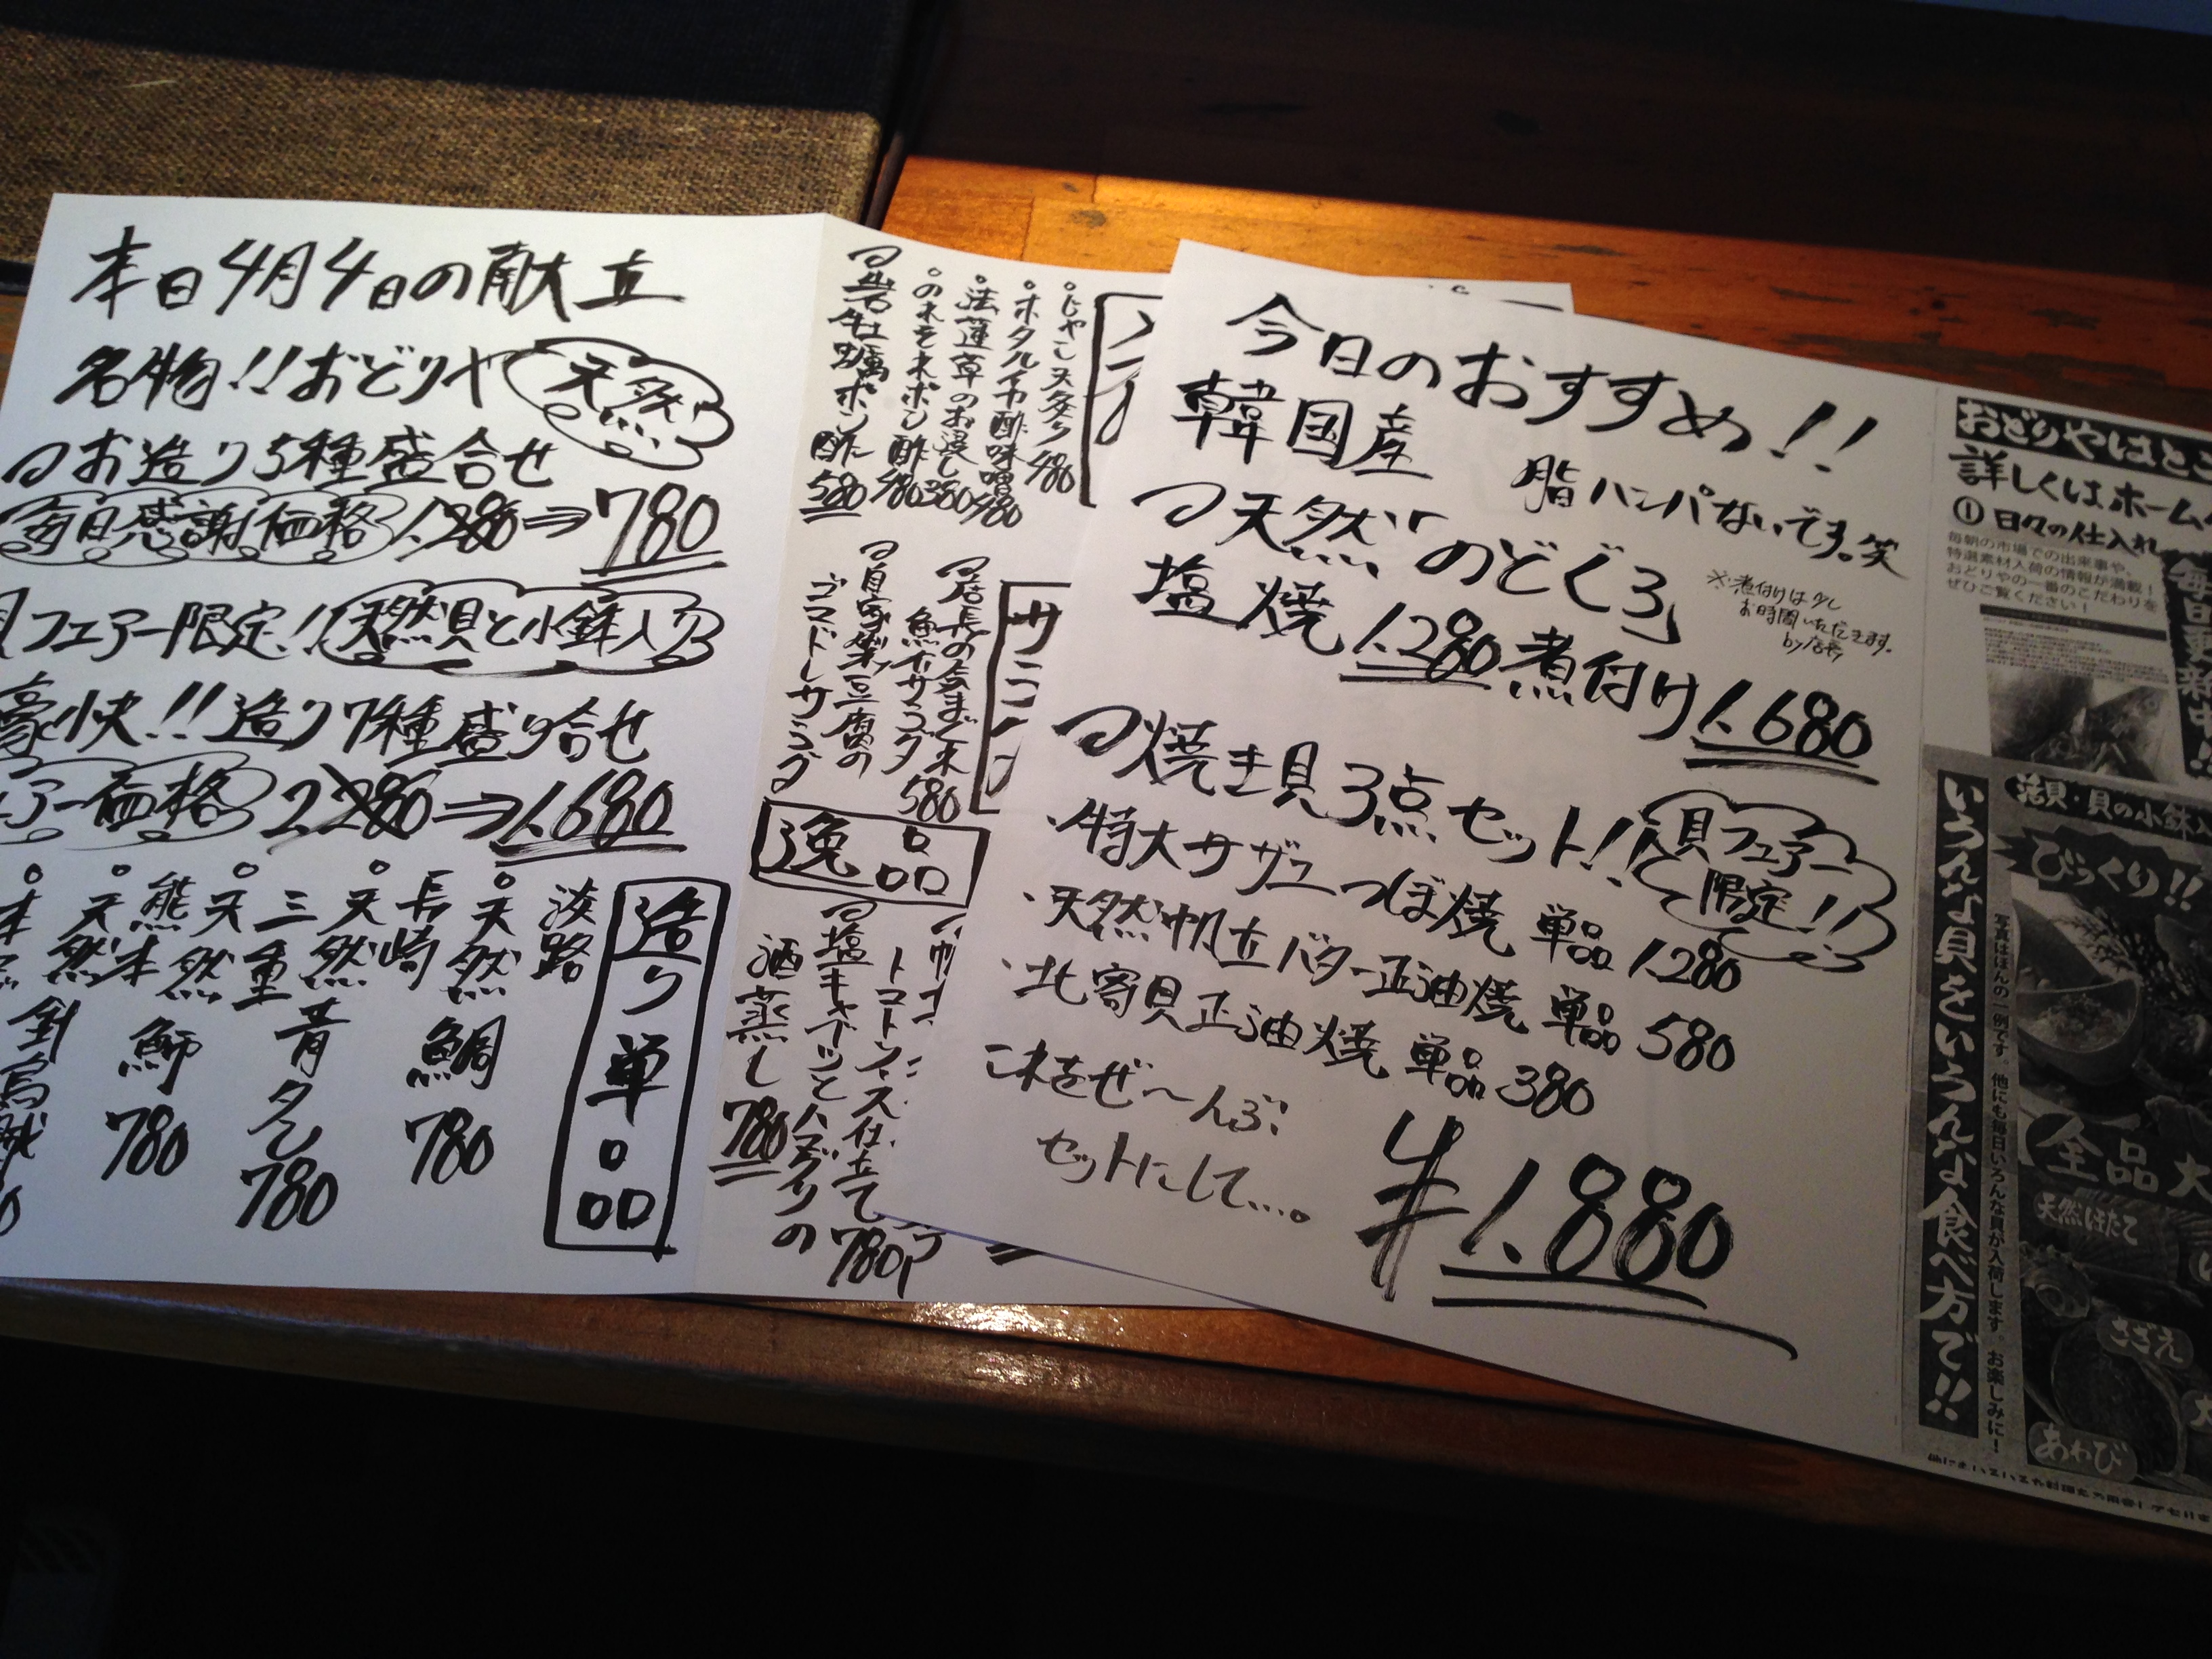 本日4月4日の献立
名物!!おどりや天然
お造り5種盛合せ
毎日感謝価格 1.280⇒780
フェアー限定!!天然貝と小鉢入り
豪快!!造り7種盛り合せ
アー価格 2.280⇒1.680
造り単品
淡路
天然 鯛 780
長崎
天然 青タル 780
三重
天然 鰤 780
熊本
天然
じゃこ天炙り 480
ホタルイカ酢味噌 480
法蓮草のお浸し 380
のれそれポン酢 480
岩牡蠣ポン酢 580
サラダ
店長の気まぐれ
魚介サラダ 580
自家製豆腐の
ゴマドレサラダ
逸品
トマトソース仕立て 780
塩キャベツとハマグリの
酒蒸し 780
今日のおすすめ!!
韓国産 脂ハンパないです。笑
天然"のどぐろ"
※煮付けは少し
お時間いただきます。
by店長
塩焼 1.280 煮付け 1.680
焼き貝3点セット!!貝フェアー限定!!
・特大サザエつぼ焼 単品 1.280
・天然帆立バター正油焼 単品 580
・北寄貝正油焼 単品 380
これをぜ〜んぶ
セットにして…。
¥1.880
おどりやはとこ
詳しくはホーム
①日々の仕入れ
毎朝の市場での出来事や、
特選素材入荷の情報が満載!
おどりやの一番のこだわりを
ぜひご覧ください!
毎日更新中!!
いろんな貝をいろんな食べ方で!!
写真はほんの一例です。他にも毎日いろんな貝が入荷します。お楽しみに!
活貝・貝の小鉢
びっくり!!
全品大
天然ほたて
さざえ
あわび